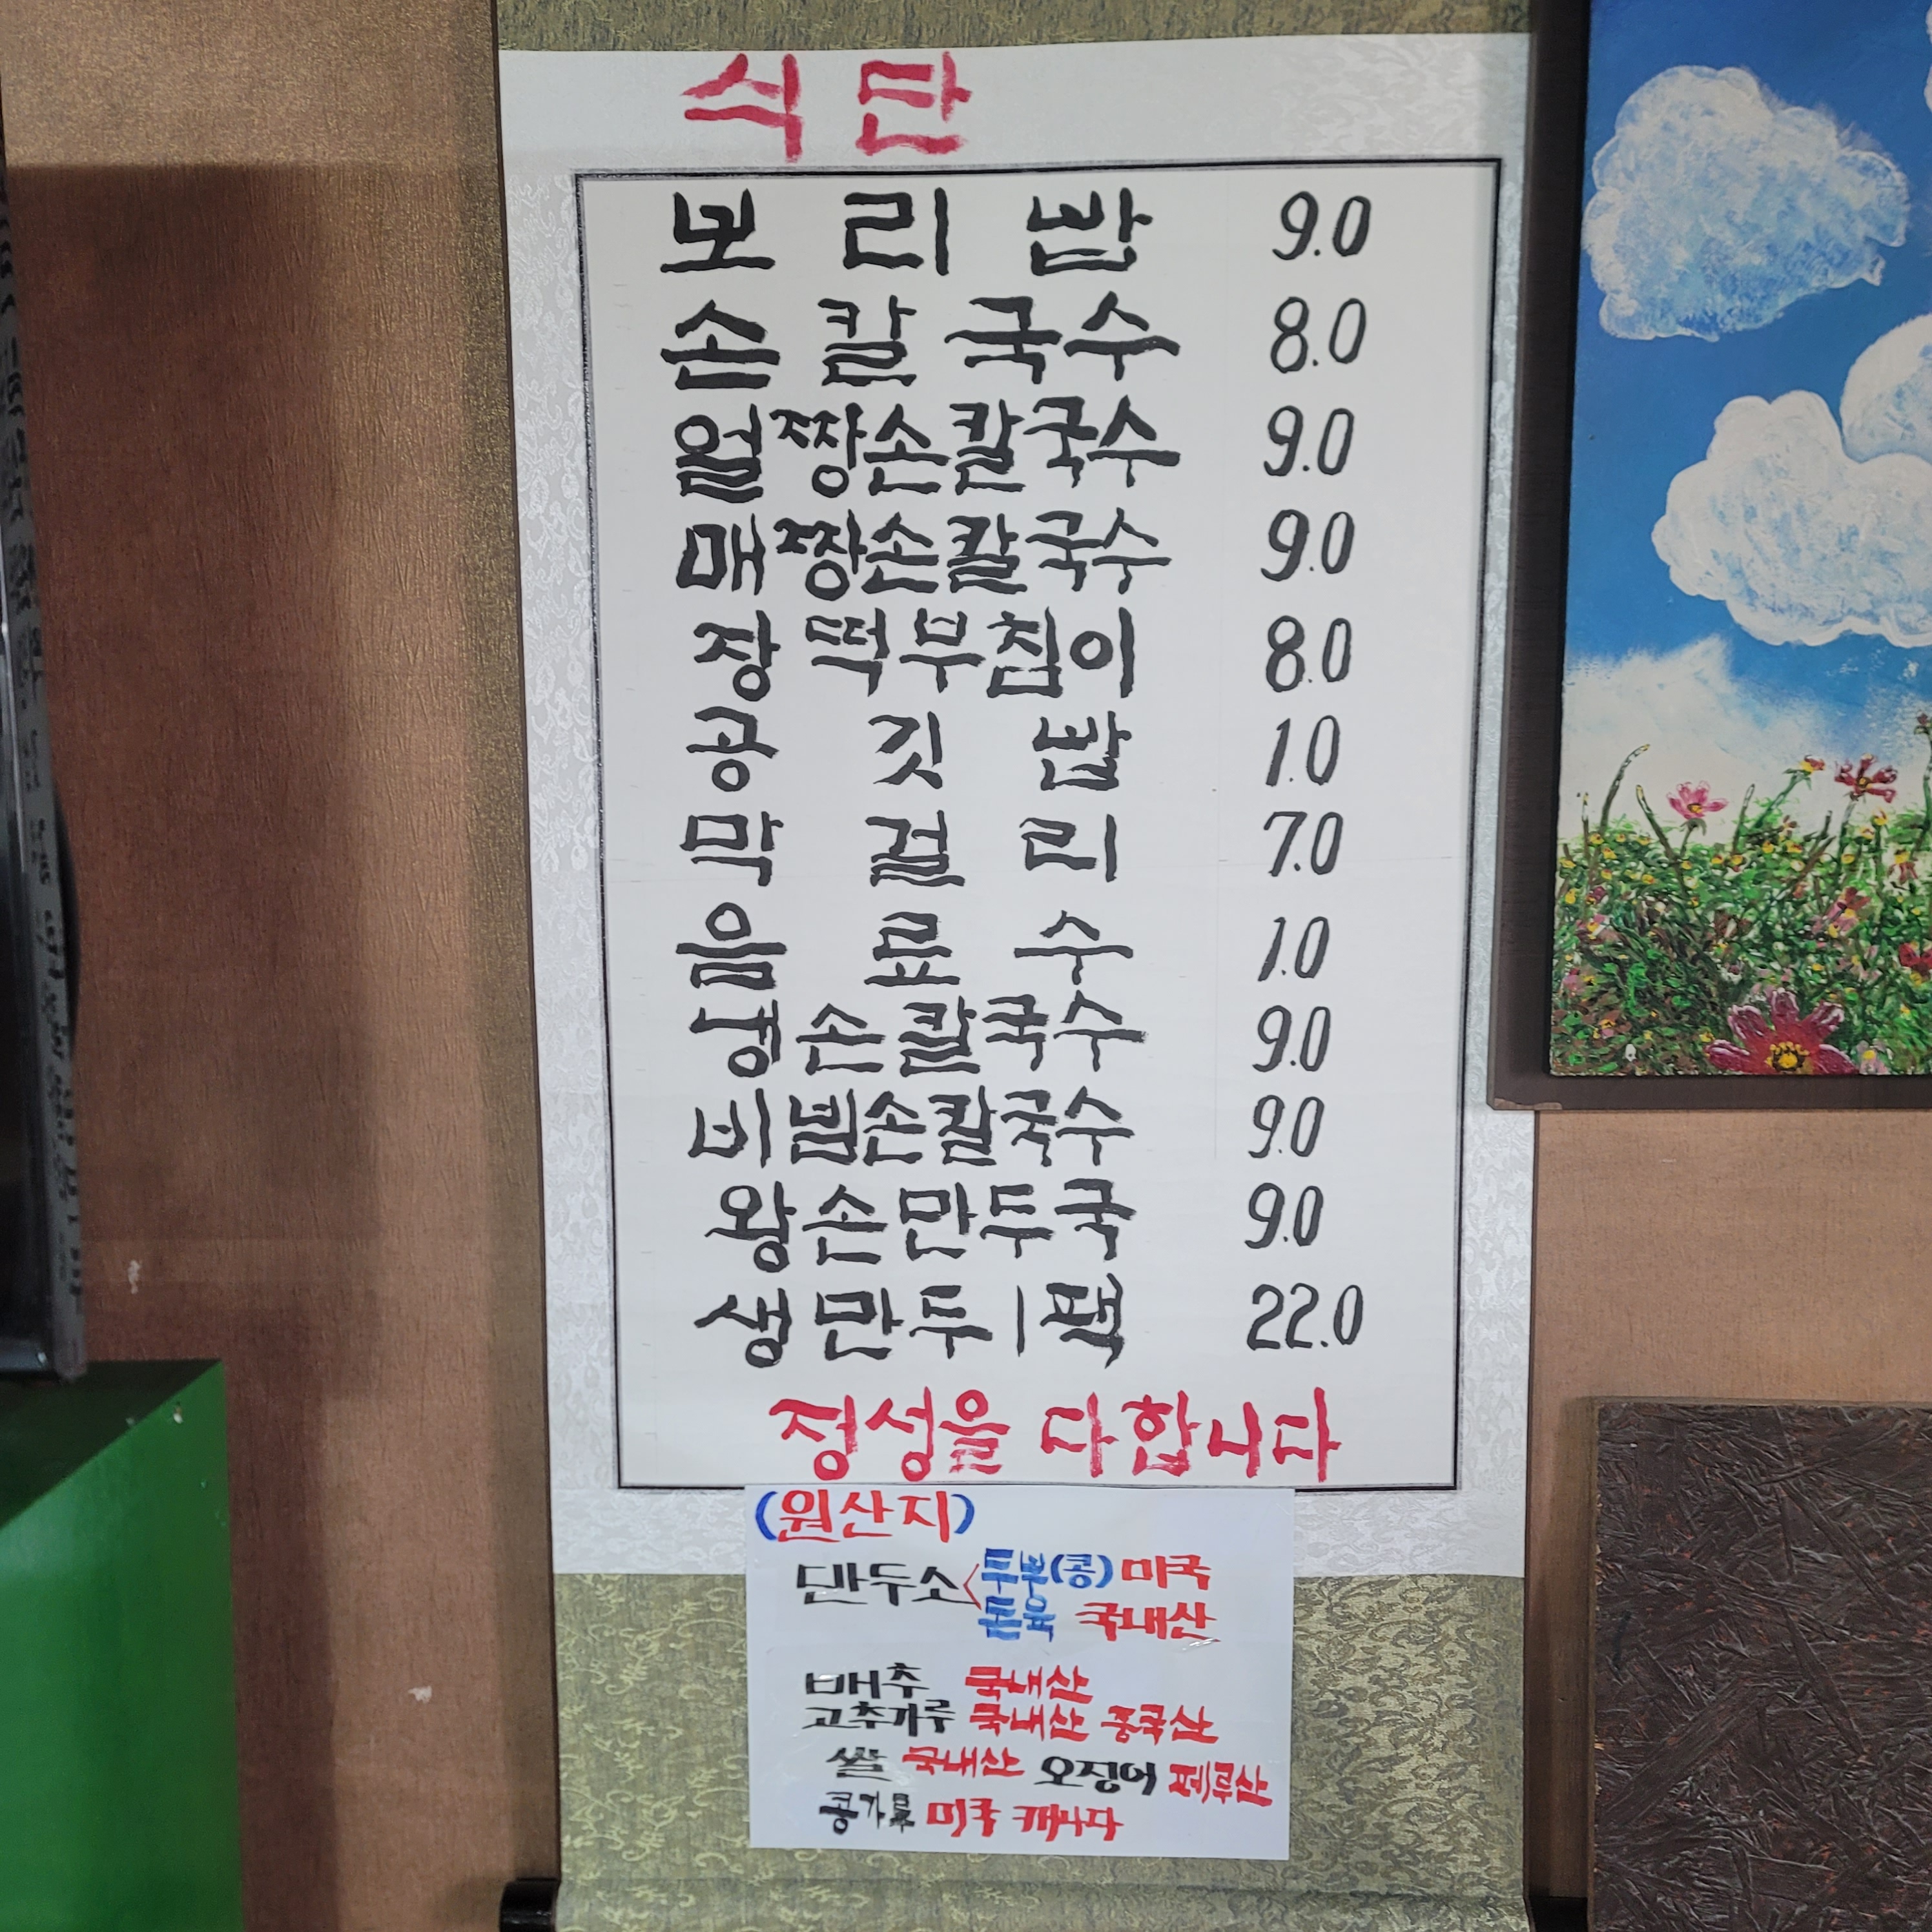 식단
보리밥 9.0
손칼국수 8.0
얼짱손칼국수 9.0
매짱손칼국수 9.0
장떡부침이 8.0
공깃밥 1.0
막걸리 7.0
음료수 1.0
냉손칼국수 9.0
비빔손칼국수 9.0
왕손만두국 9.0
생만두1팩 22.0
정성을 다합니다
(원산지)
만두소 두부(콩) 미국
돈육 국내산
배추 국내산
고추가루 국내산 중국산
쌀 국내산 오징어
콩가루 미국 캐나다